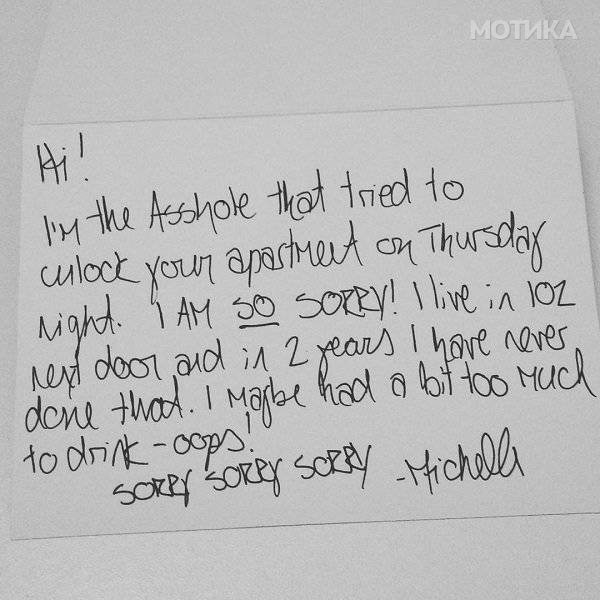 МОТИКА
Hi!
I'm the Asshole that tried to
unlock your apartment on Thursday
night. I AM SO SORRY! I live in 102
next door and in 2 years I have never
done that. I maybe had a bit too much
to drink - oops!
SORRY SORRY SORRY -Michelle